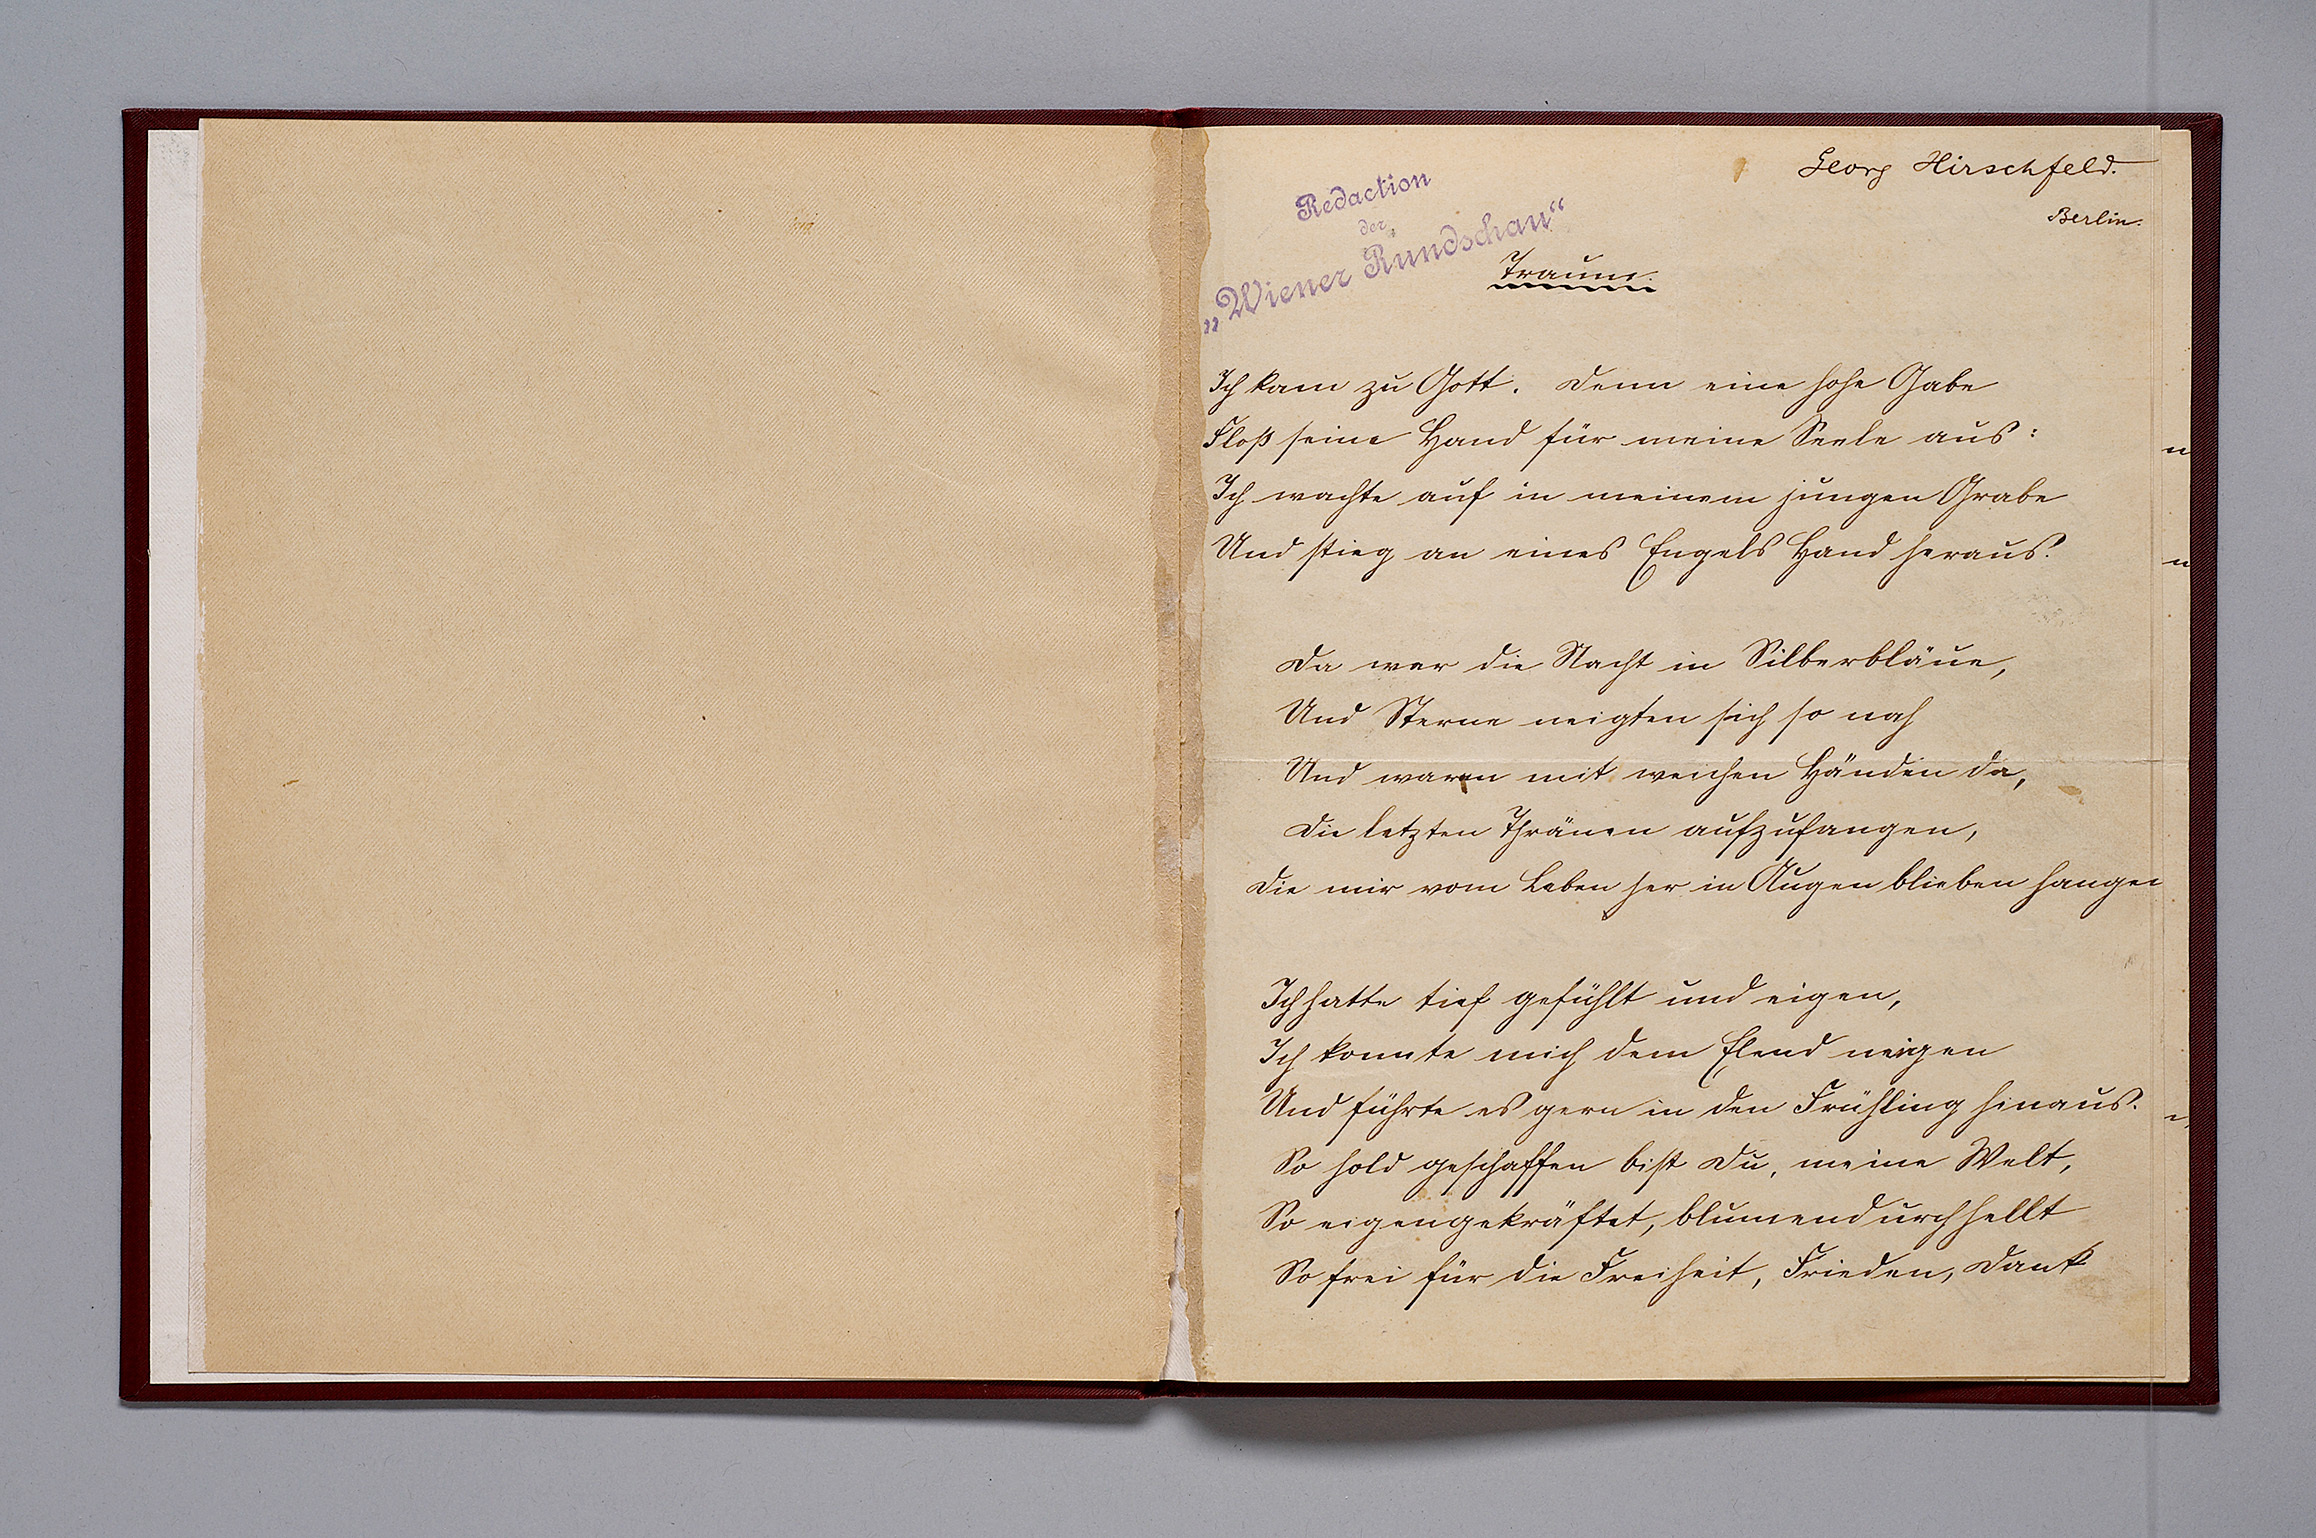 Georg Hirschfeld.
Berlin.
Redaction
der
„Wiener Rundschau“
Traum.
Ich kam zu Gott. Denn eine hohe Gabe
Floß seine Hand für meine Seele aus:
Ich wachte auf in meinem jungen Grabe
Und stieg an eines Engels Hand heraus.
Da war die Nacht in Silberbläue,
Und Sterne neigten sich so nah
Und waren mit weichen Händen da,
Die letzten Thränen aufzufangen,
Die mir vom Leben her in Augen blieben hangen
Ich hatte tief gefühlt und eigen,
Ich konnte mich dem Elend neigen
Und führte es gern in den Frühling hinaus.
So hold geschaffen bist Du, meine Welt,
So eigengekräftet, blumendurchhellt
So frei für die Freiheit, Frieden, Dank